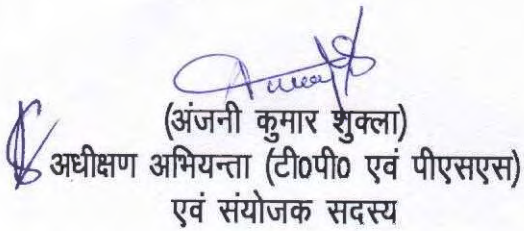 (अंजनी कुमार शुक्ला)
अधीक्षण अभियन्ता (टी०पी० एवं पीएसएस)
एवं संयोजक सदस्य